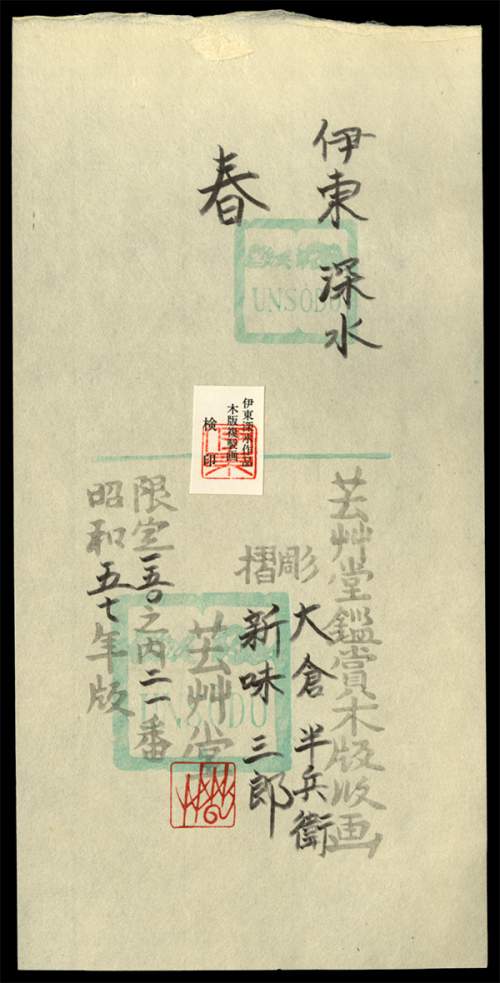 伊東 深水
春
UNSODO
伊東深水作品
木版複製画
検印
芸艸堂鑑賞木版版画
彫 大倉 半兵衛
摺 新味 三郎
芸艸堂
UNSODO
限定一五〇之内二一番
昭和五七年版